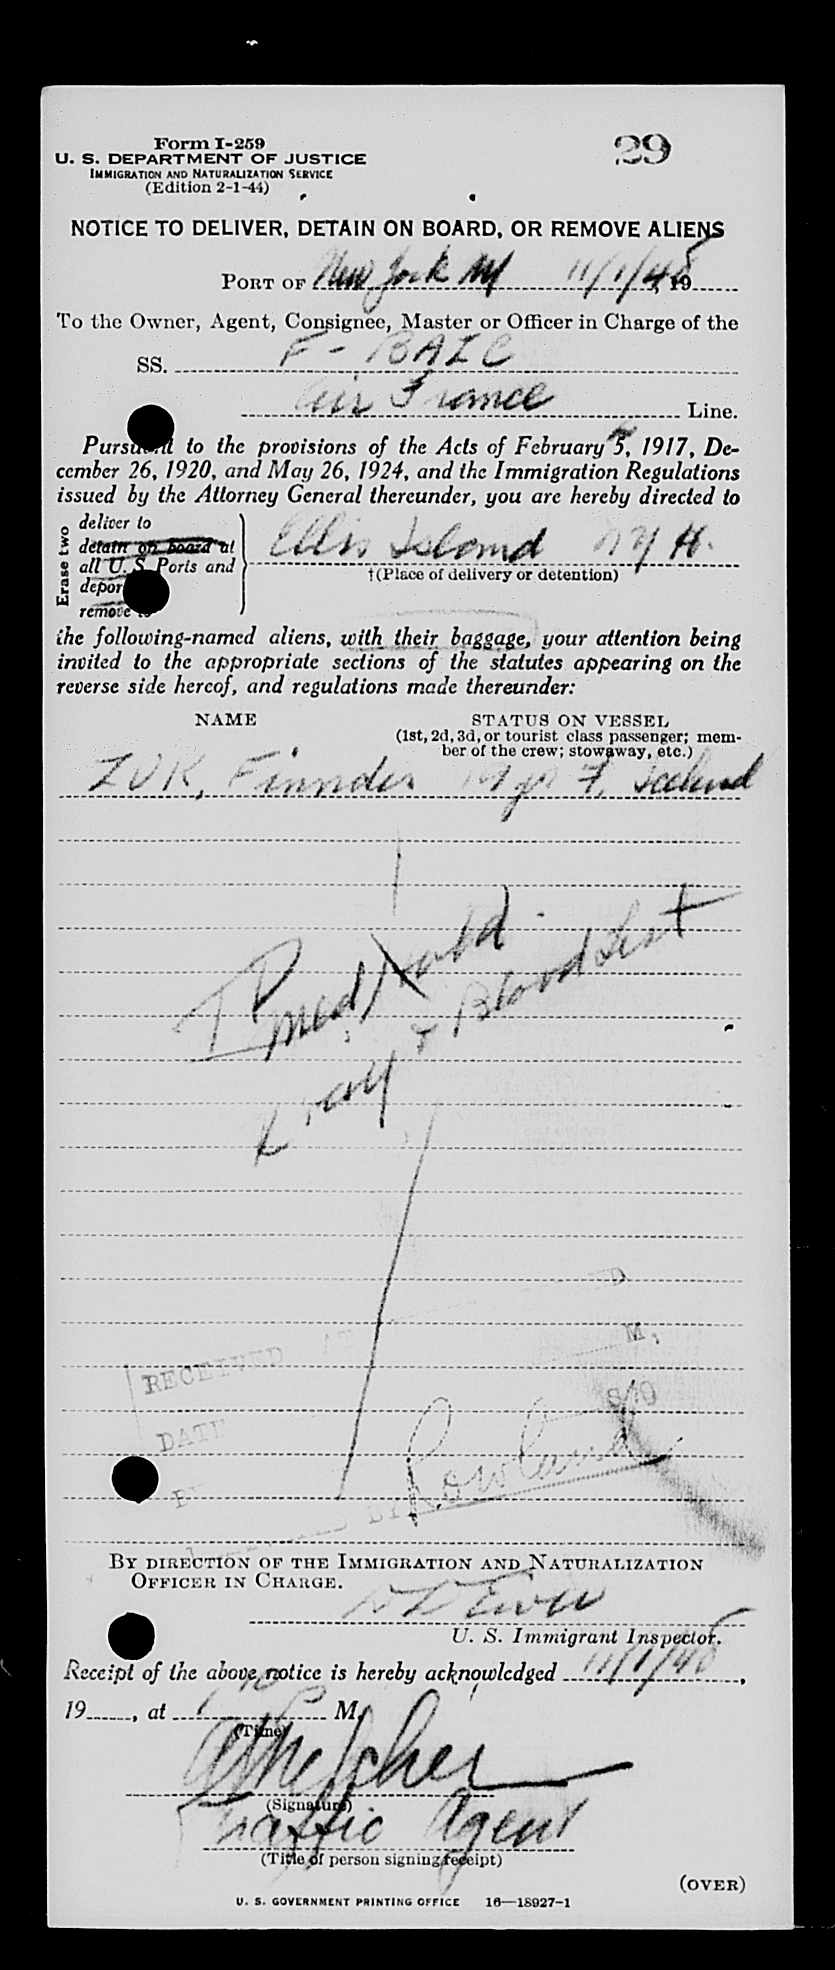 Form I-259
29
U. S. DEPARTMENT OF JUSTICE
IMMIGRATION AND NATURALIZATION SERVICE
(Edition 2-1-44)
NOTICE TO DELIVER, DETAIN ON BOARD, OR REMOVE ALIENS
PORT OF New York NY 11/1/48, 19
To the Owner, Agent, Consignee, Master or Officer in Charge of the
SS. F-BAIC
Air France Line.
Pursuant to the provisions of the Acts of February 5, 1917, De-
cember 26, 1920, and May 26, 1924, and the Immigration Regulations
issued by the Attorney General thereunder, you are hereby directed to
Erase two
deliver to
detain on board at
all U. S. Ports and
deport
remove to
Ellis Island NYH.
†(Place of delivery or detention)
the following-named aliens, with their baggage, your attention being
invited to the appropriate sections of the statutes appearing on the
reverse side hereof, and regulations made thereunder:
NAME STATUS ON VESSEL
(1st, 2d, 3d, or tourist class passenger; mem-
ber of the crew; stowaway, etc.)
ZUK, F, Iceland
Med Hold
Xray & Blood Test
RECEIVED AT
M.
DATE
BY
Rowland
BY DIRECTION OF THE IMMIGRATION AND NATURALIZATION
OFFICER IN CHARGE.
U. S. Immigrant Inspector.
Receipt of the above notice is hereby acknowledged 11/1/48,
19, at P M.
(Time)
(Signature)
Traffic Agent
(Title of person signing receipt)
(OVER)
U. S. GOVERNMENT PRINTING OFFICE 16—18927-1